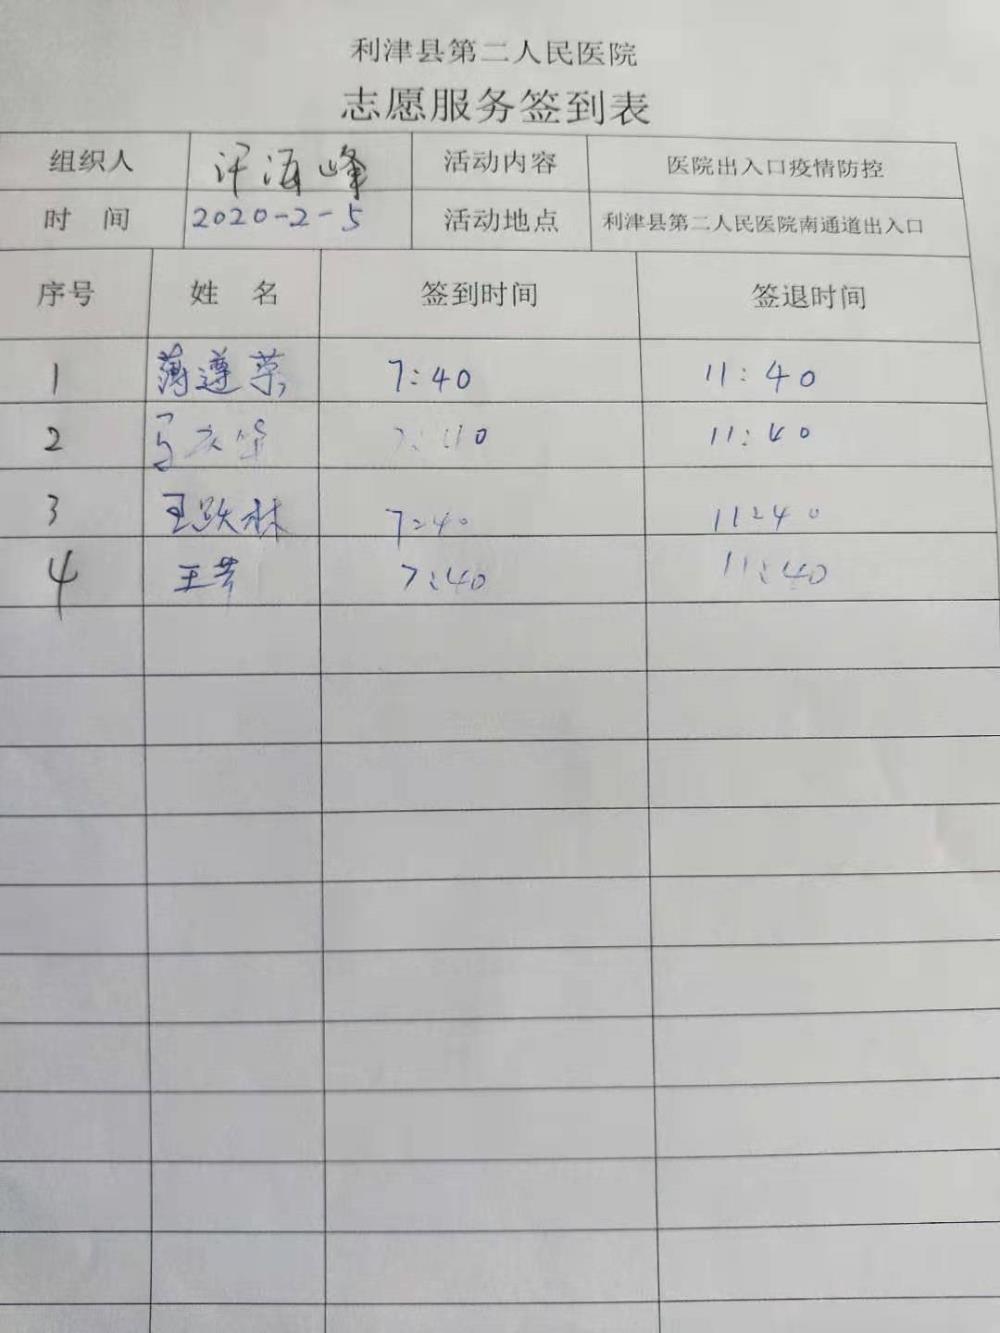 利津县第二人民医院
志愿服务签到表
组织人 许海峰 活动内容 医院出入口疫情防控
时 间 2020-2-5 活动地点 利津县第二人民医院南通道出入口
序号 姓 名 签到时间 签退时间
1 薄遵荣 7:40 11:40
2 马 7:40 11:40
3 王跃林 7:40 11:40
4 王芳 7:40 11:40